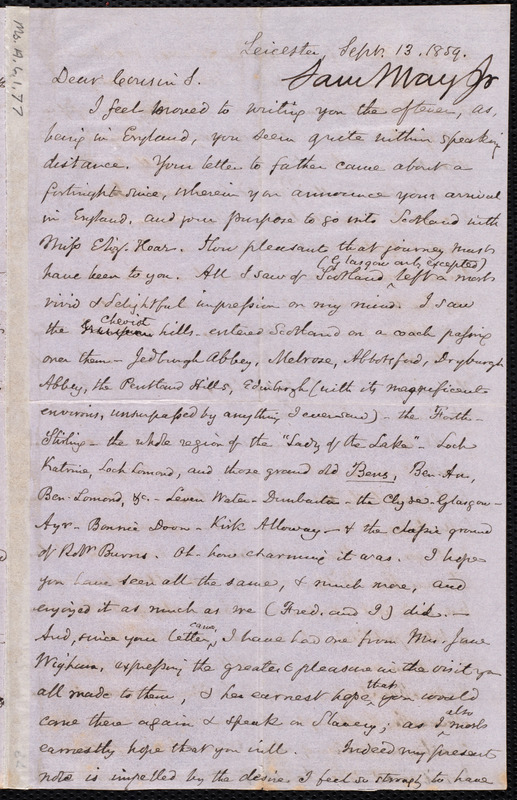 Ms.A.6.1.77
Leicester, Sept. 13. 1859.
Sam May Jr
Dear Cousin S.
I feel moved to writing you the oftener, as,
being in England, you seem quite within speaking
distance. Your letter to father came about a
fortnight since, wherein you announce your arrival
in England, and your purpose to go into Scotland with
Miss Eliz. Hoar. How pleasant that journey must
have been to you. All I saw of Scotland (Glasgow only excepted) left a most
vivid & delightful impression on my mind. I saw
the Cheviot hills - entered Scotland on a coach passing
over them - Jedburgh Abbey, Melrose, Abbotsford, Dryburgh
Abbey, the Pentland Hills, Edinborgh (with its magnificent
environs, unsurpassed by anything I ever saw) - the Forth -
Stirling - the whole region of the "Lady of the Lake" - Loch
Katrine, Loch Lomond, and those grand old Bens, Ben-An,
Ben-Lomond, &c. - Leven Water - Dumbarton - the Clyde - Glasgow -
Ayr - Bonnie Doon - Kirk Alloway - & the classic ground
of Robt. Burns. Oh - how charming it was. I hope
you have seen all the same, & much more, and
enjoyed it as much as we (Fred. and I) did. -
And, since your letter came, I have had one from Mrs. Jane
Wigham, expressing the greatest pleasure in the visit you
all made to them, & her earnest hope that you would
come there again & speak on Slavery; as I also most
earnestly hope that you will. Indeed my present
note is impelled by the desire I feel so strongly to have